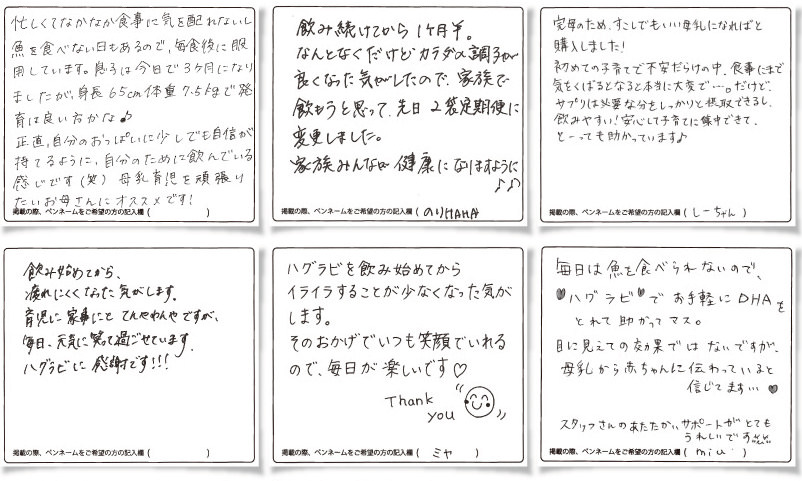 忙しくてなかなか食事に気を配れないし
魚を食べない日もあるので、毎食後に服
用しています。息子は今日で3ヶ月になり
ましたが、身長65cm体重7.5kgで発
育は良い方かな♪
正直、自分のおっぱいに少しでも自信が
持てるように、自分のために飲んでいる
感じです(笑) 母乳育児を頑張り
たいお母さんにオススメです!
掲載の際、ペンネームをご希望の方の記入欄( )
飲み続けてから1ヶ月半。
なんとなくだけどカラダの調子が
良くなった気がしたので、家族で
飲もうと思って、先日2袋定期便に
変更しました。
家族みんなが健康になりますように
♪♪
掲載の際、ペンネームをご希望の方の記入欄(のりHAHA )
完母のため、すこしでもいい母乳になればと
購入しました!
初めての子育てで不安だらけの中、食事にまで
気をくばるとなると本当に大変で…。だけど、
サプリは必要な分をしっかりと摂取できるし、
飲みやすい!安心して子育てに集中できて、
とーっても助かっています♪
掲載の際、ペンネームをご希望の方の記入欄( しーちゃん )
飲み始めてから、
疲れにくくなった気がします。
育児に家事にと てんやわんやですが、
毎日、元気に笑って過ごせています。
ハグラビに感謝です!!!
掲載の際、ペンネームをご希望の方の記入欄( )
ハグラビを飲み始めてから
イライラすることが少なくなった気が
します。
そのおかげでいつも笑顔でいれる
ので、毎日が楽しいです♡
Thank
you
掲載の際、ペンネームをご希望の方の記入欄( ミヤ )
毎日は魚を食べられないので、
♥ハグラビ♥でお手軽にDHAを
とれて助かってマス。
目に見えての効果ではないですが、
母乳から赤ちゃんに伝わっていると
信じてます…♥
スタッフさんのあたたかいサポートがとても
うれしいです
掲載の際、ペンネームをご希望の方の記入欄( miu )